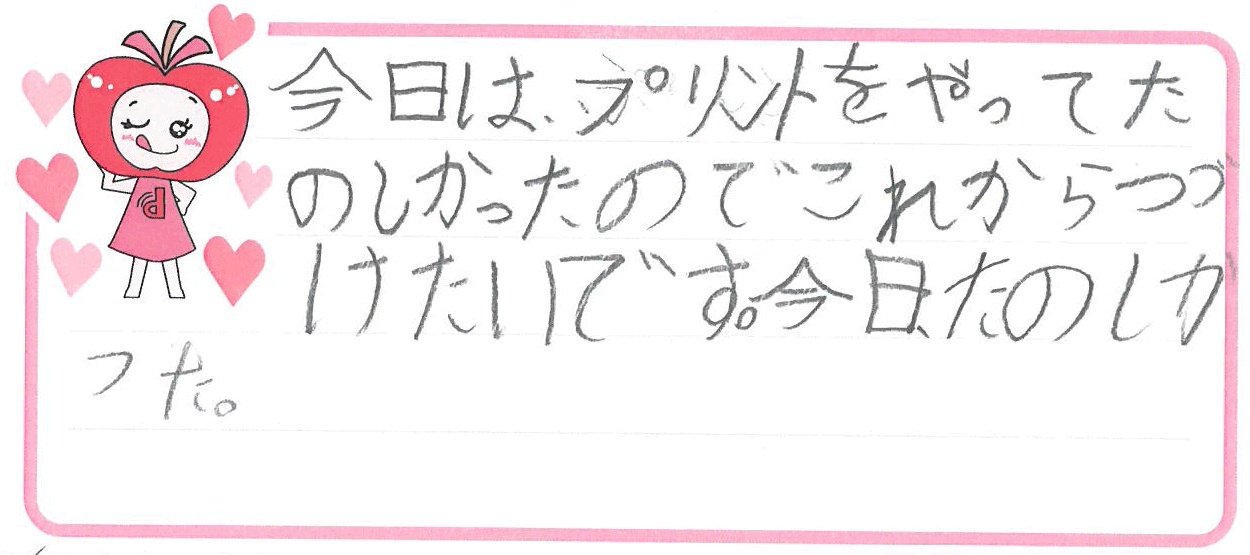 今日は、プリントをやってた
のしかったのでこれからつづ
けたいです。今日、たのしか
った。